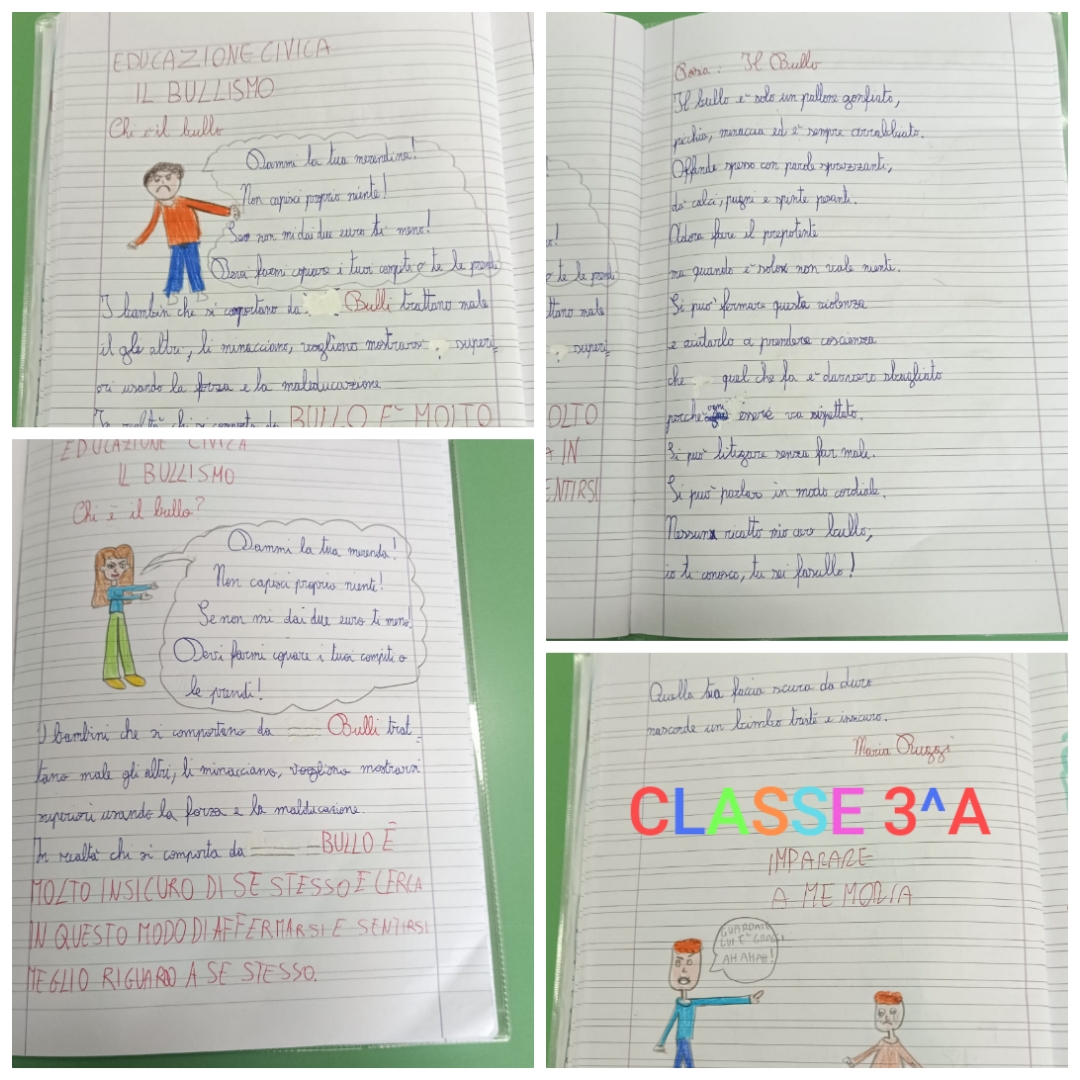 EDUCAZIONE CIVICA
IL BULLISMO
Chi è il bullo
Dammi la tua merendina!
Non capisci proprio niente!
Se non mi dai due euro ti meno!
Devi farmi copiare i tuoi compiti o te le prendi
I bambin che si comportano da Bulli trattano male
il gle altri, li minacciano, vogliono mostrarsi superi=
ori usando la forza e la maleducazione
In realtà chi si comporta da BULLO E' MOLTO
EDUCAZIONE CIVICA
IL BULLISMO
Chi è il bullo?
Dammi la tua merenda!
Non capisci proprio niente!
Se non mi dai due euro ti meno!
Devi farmi copiare i tuoi compiti o
le prendi!
I bambini che si comportano da Bulli trat=
tano male gli altri, li minacciano, vogliono mostrarsi
superiori usando la forza e la maleducazione.
In realtà chi si comporta da BULLO È
MOLTO INSICURO DI SE STESSO E CERCA
IN QUESTO MODO DI AFFERMARSI E SENTIRSI
MEGLIO RIGUARDO A SE STESSO.
o!
o te le prendi
ttano male
superi=
OLTO
A IN
ENTIRSI
Poesia: Il Bullo
Il bullo è solo un pallone gonfiato,
picchia, minaccia ed è sempre arrabbiato.
Offende spesso con parole sprezzanti,
dà calci, pugni e spinte pesanti.
Adora fare il prepotente
ma quando è solo non vale niente.
Si può fermare questa violenza
e aiutarlo a prendere coscienza
che quel che fa è davvero sbagliato
perché ogni essere va rispettato.
Si può litigare senza far male.
Si può parlar in modo cordiale.
Nessun ricatto mio caro bullo,
io ti conosco, tu sei fasullo!
Quella tua faccia scura da duro
nasconde un bimbo triste e insicuro.
Maria Ruggi
CLASSE 3^A
IMPARARE
A MEMORIA
GUARDATE
LUI E'
AH AHAH!